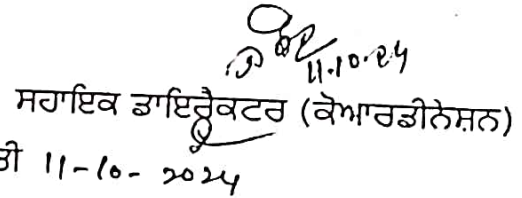 11.10.24
ਸਹਾਇਕ ਡਾਇਰੈਕਟਰ (ਕੋਆਰਡੀਨੇਸ਼ਨ)
ਤੀ 11-10-2024